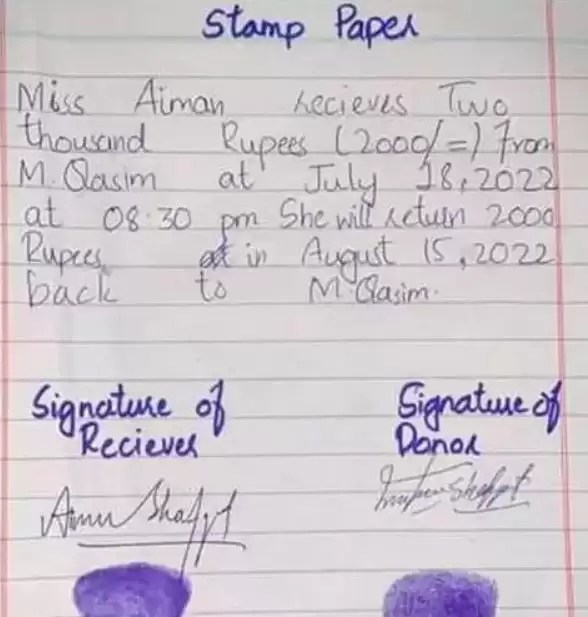 Stamp Paper
Miss Aiman recieves Two
thousand Rupees (2000/=) From
M. Qasim at July 18, 2022
at 08:30 pm She will return 2000
Rupees in August 15, 2022
back to M. Qasim.
Signature of Signature of
Reciever Donor